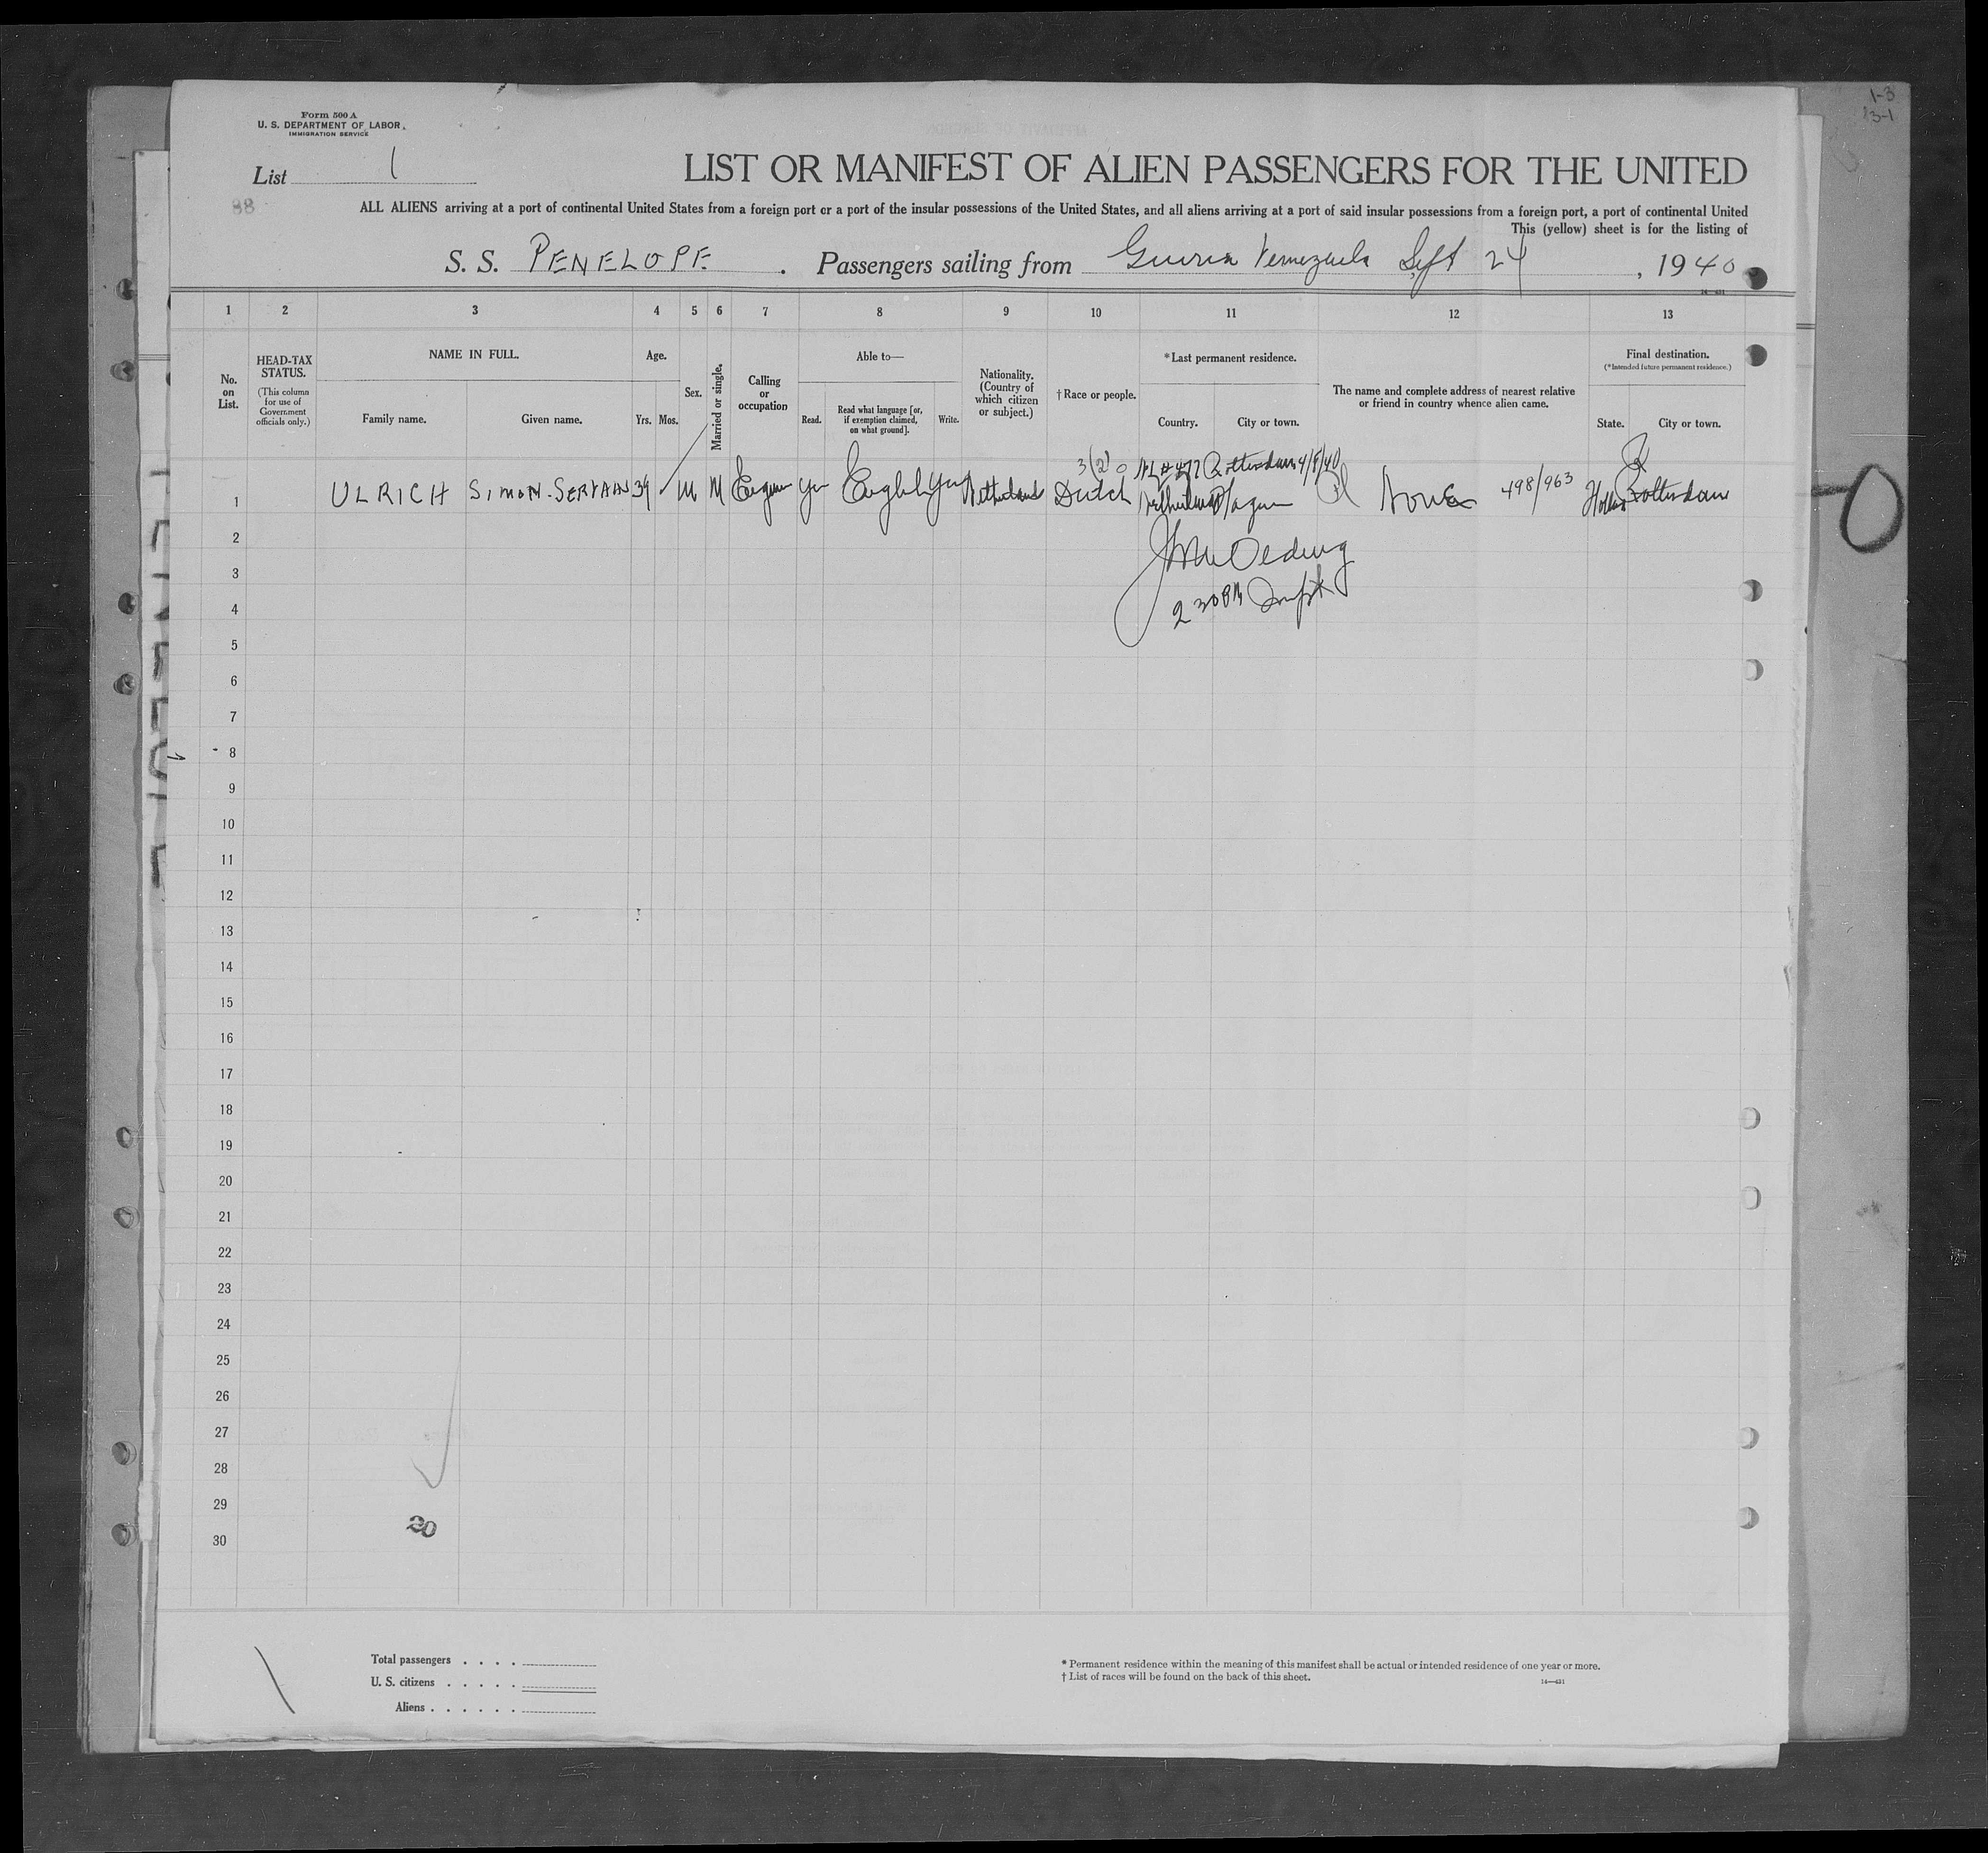 1-3
13-1
Form 500 A
U. S. DEPARTMENT OF LABOR
IMMIGRATION SERVICE
List 1
LIST OR MANIFEST OF ALIEN PASSENGERS FOR THE UNITED
88
ALL ALIENS arriving at a port of continental United States from a foreign port or a port of the insular possessions of the United States, and all aliens arriving at a port of said insular possessions from a foreign port, a port of continental United
This (yellow) sheet is for the listing of
S. S. PENELOPE . Passengers sailing from Guiria Venezuela Sept 24 , 1940
1 2 3 4 5 6 7 8 9 10 11 12 13
No. on List.
HEAD-TAX STATUS.
(This column for use of Government officials only.)
NAME IN FULL.
Family name. Given name.
Age.
Yrs. Mos.
Sex.
Married or single.
Calling or occupation
Able to—
Read. Read what language [or, if exemption claimed, on what ground]. Write.
Nationality. (Country of which citizen or subject.)
†Race or people.
*Last permanent residence.
Country. City or town.
The name and complete address of nearest relative or friend in country whence alien came.
Final destination.
(*Intended future permanent residence.)
State. City or town.
3(2) Rotterdam 4/8/40
1 ULRICH SIMON-SERVAAS 39 M M yes English yes Netherlands Dutch None 498/963 Rotterdam
2
3
4
5
6
7
8
9
10
11
12
13
14
15
16
17
18
19
20
21
22
23
24
25
26
27
28
29
30
20
Total passengers . . . .
U. S. citizens . . . . .
Aliens . . . . . .
* Permanent residence within the meaning of this manifest shall be actual or intended residence of one year or more.
† List of races will be found on the back of this sheet.
14—431